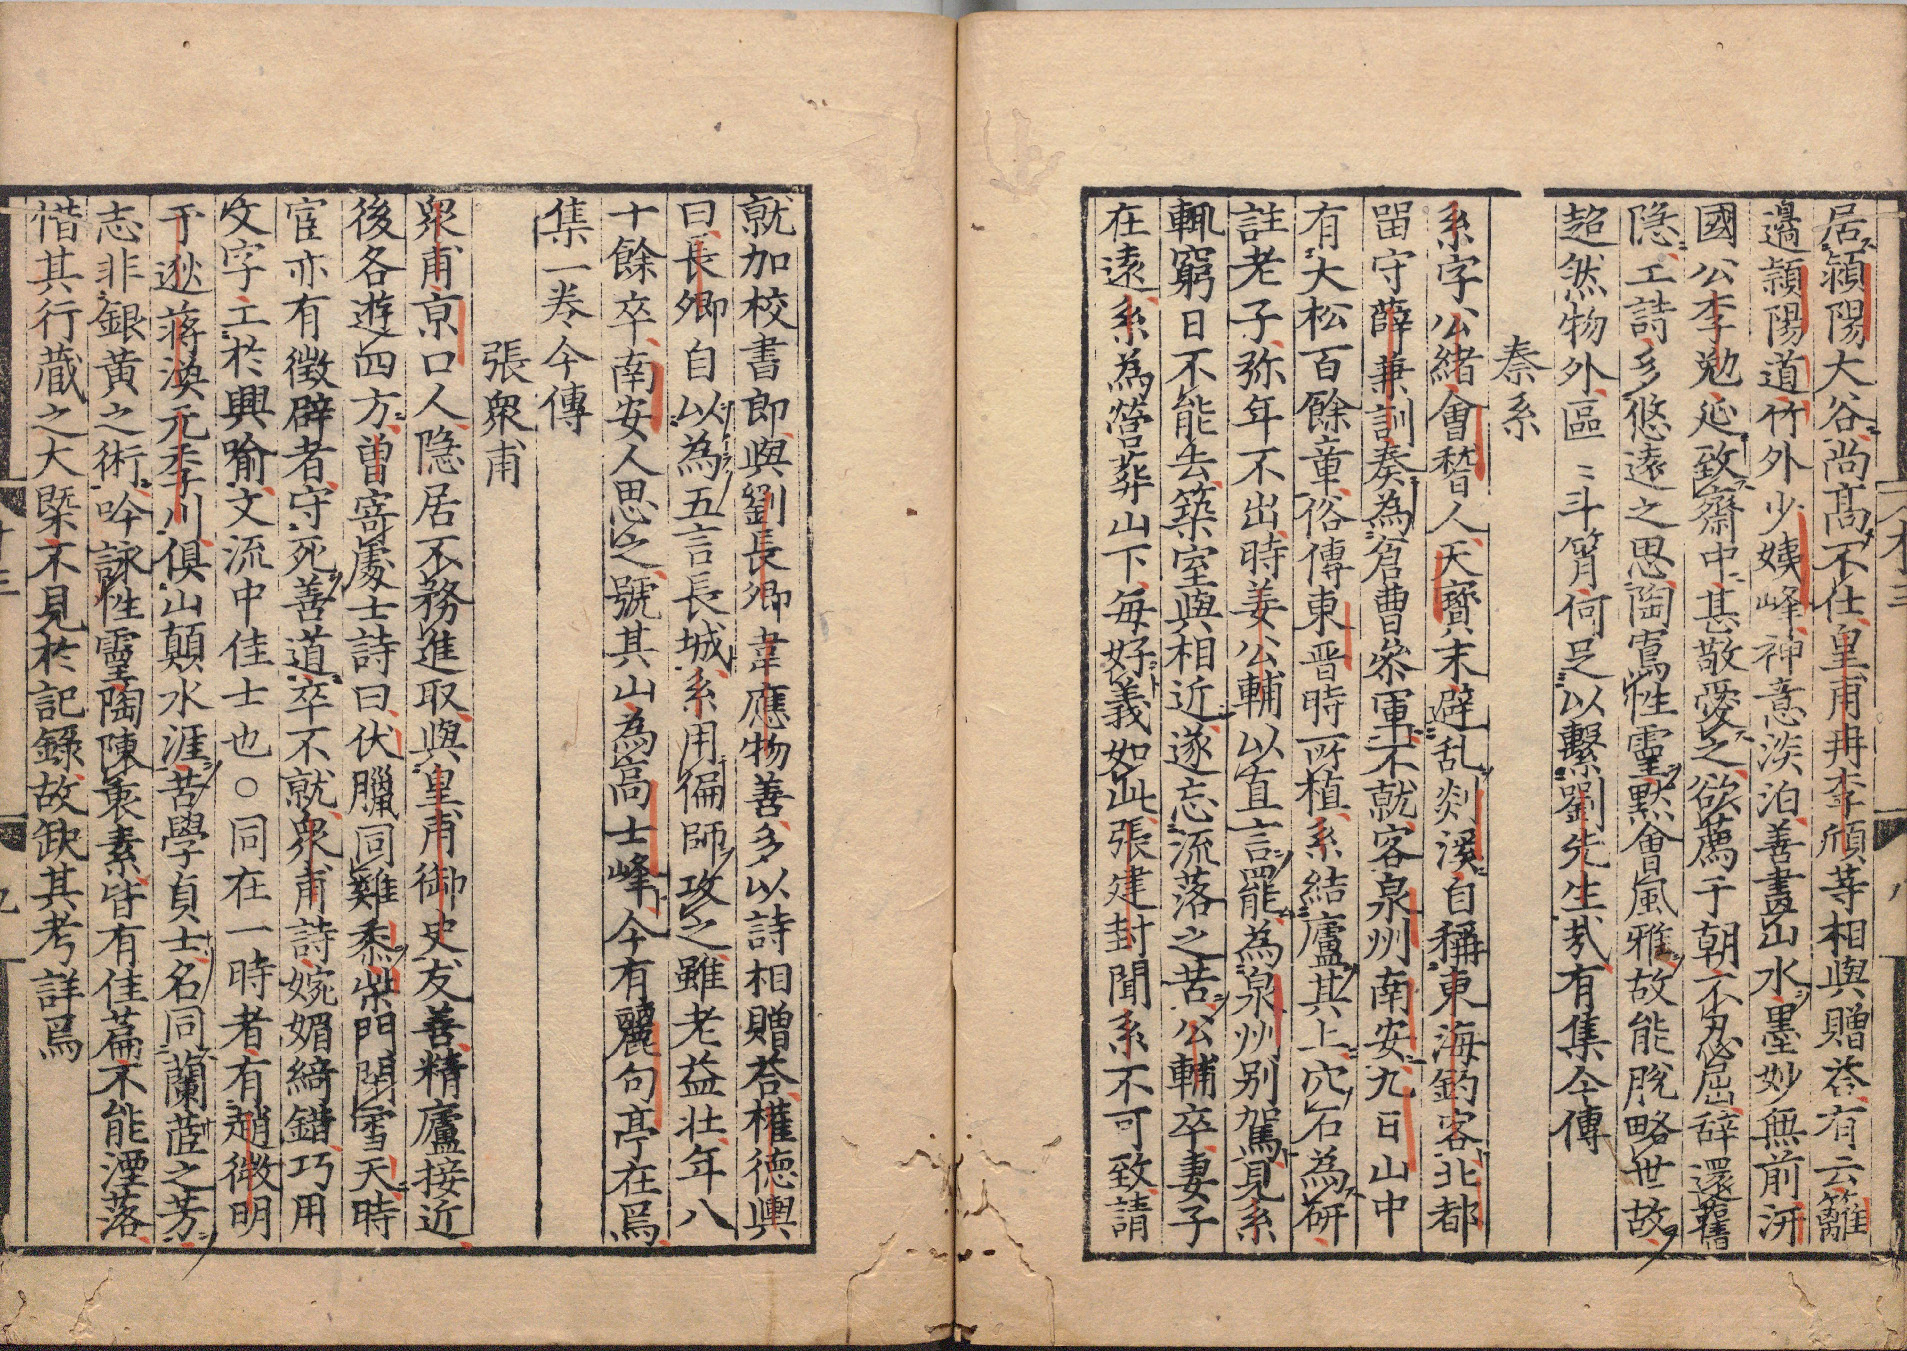 居潁陽大谷尚髙不仕皇甫冉李頎䓁相與贈荅有云籬
邊潁陽道竹外少姨峰神意淡泊善畫山水墨妙無前汧
國公李勉延致齋中甚敬愛之欲薦于朝不忍屈辭還舊
隐工詩多悠遠之思陶寫性靈黙會風雅故能脫略世故
超然物外區〻斗筲何足以繫劉先生㢤有集今傳
秦系
系字公緒會稽人天寳末避乱剡溪自稱東海釣客北都
留守薛兼訓奏為倉曹叅軍不就客泉州南安九日山中
有大松百餘章俗傳東晋時所植系結廬其上穴石為研
註老子弥年不出時姜公輔以直言罷為泉州别駕見系
輒窮日不能去築室與相近遂忘流落之苦公輔卒妻子
在遠系為營葬山下每好義如此張建封聞系不可致請
就加校書郎與劉長卿韋應物善多以詩相贈荅權徳輿
曰長卿自以為五言長城系用偏師攻之雖老益壮年八
十餘卒南安人思之號其山為髙士峰今有麗句亭在焉
集一卷今傳
張衆甫
衆甫京口人隐居不務進取與皇甫御史友善精廬接近
後各遊四方曽寄處士詩曰伏臘同雞黍柴門閉雪天時
宦亦有徵辟者守死善道卒不就衆甫詩婉媚綺錯巧用
文字工於興喻文流中佳士也○同在一時者有趙微明
于逖蒋渙元季川俱山顛水涯苦學貞士名同蘭茝之芳
志非銀黃之術吟詠性靈陶陳衷素皆有佳篇不能湮落
惜其行藏之大槩不見於記錄故缺其考詳焉